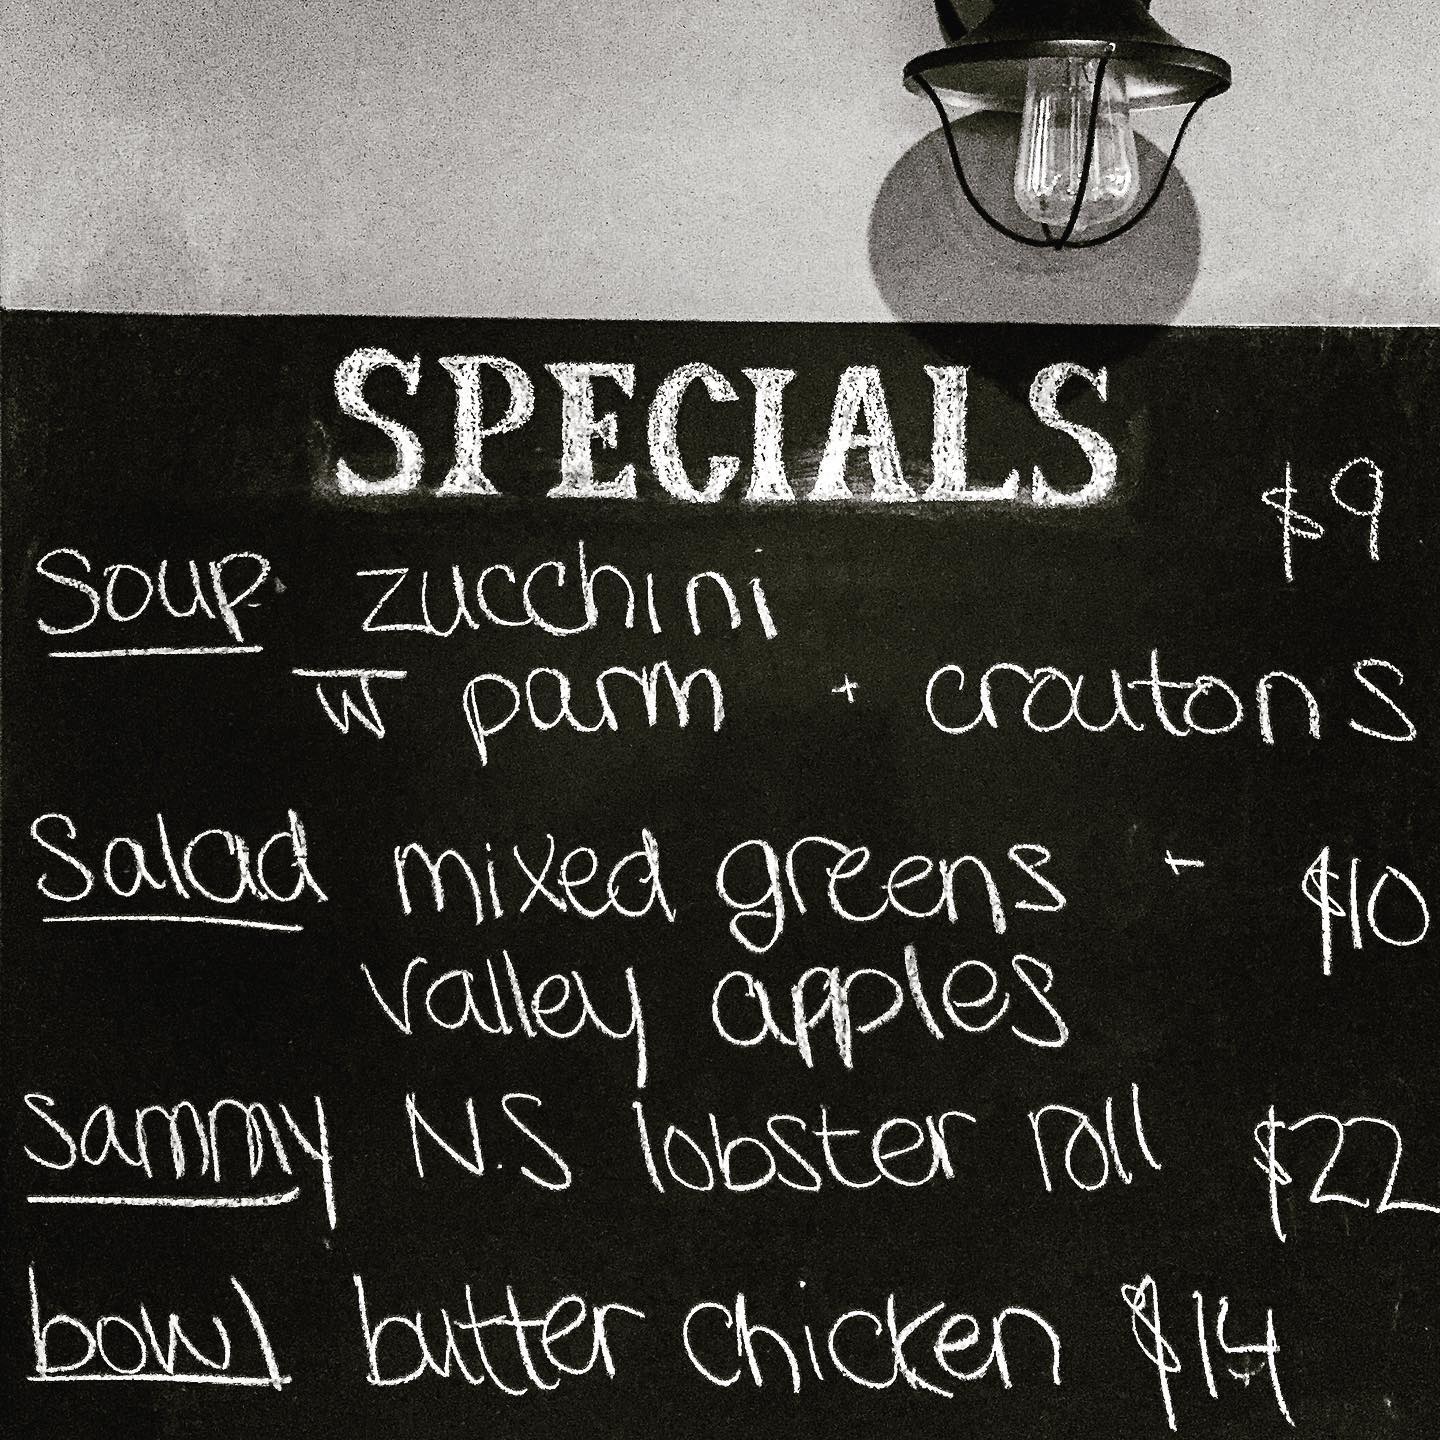 SPECIALS
$9
Soup zucchini
w parm + croutons
Salad mixed greens + $10
valley apples
Sammy N.S lobster roll $22
bowl butter chicken $14